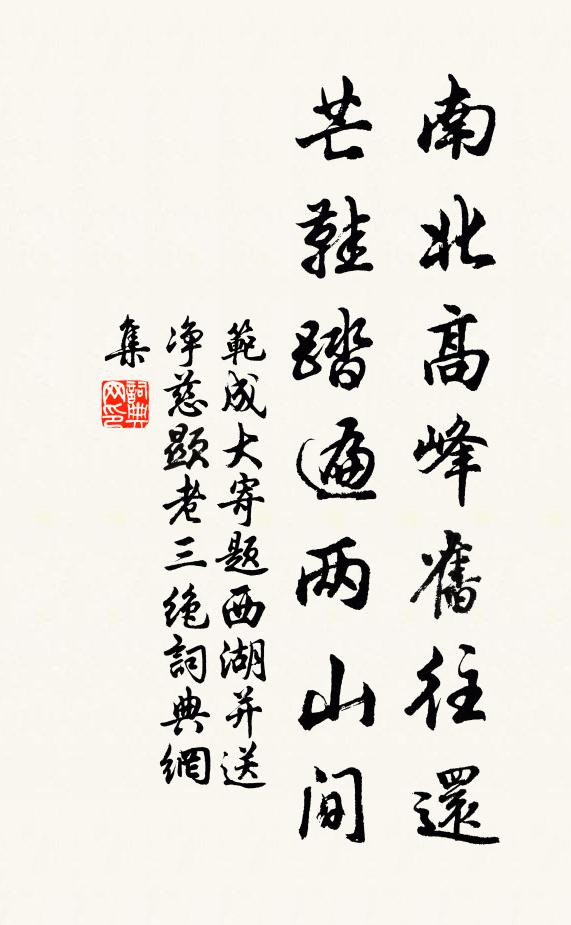 南北高峰舊往還
芒鞋踏遍两山间
範成大寄题西湖并送
净慈顯老三绝詞典網
集
詞典
网印